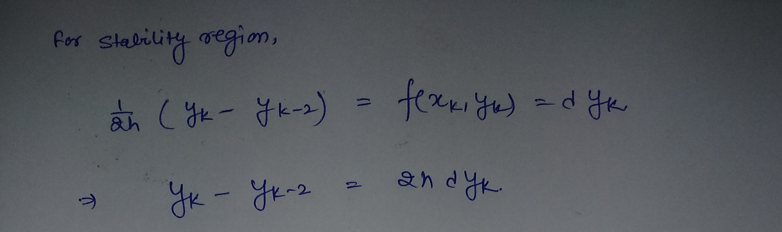 for stability region,
1/2h (yk - yk-2) = f(xk, yk) = d yk
⇒ yk - yk-2 = 2h d yk.